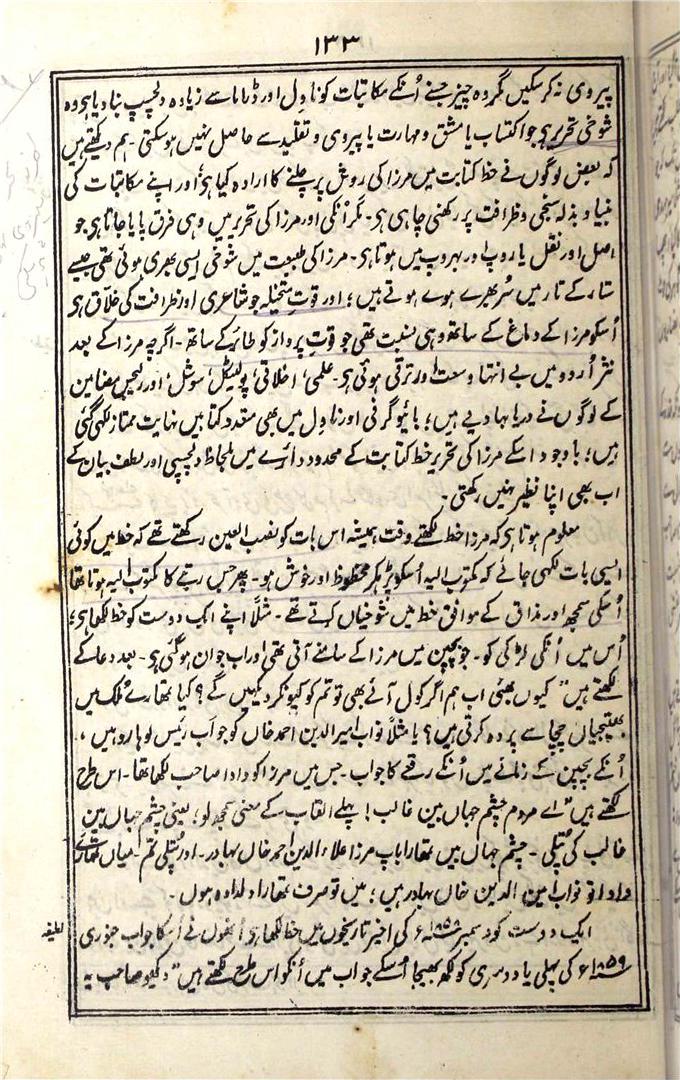 ۱۳۳
پیروی نہ کر سکیں مگر وہ چیز جسنے اُنکے مکاتبات کو ناول اور ڈراما سے زیادہ دلچسپ بنا دیا ہی وہ
شوخی تحریر ہی جو اکتساب یا مشق و مہارت یا پیروی و تقلید سے حاصل نہیں ہو سکتی ۔ ہم دیکھتے ہیں
کہ بعض لوگوں نے خط کتابت میں مرزا کی روش پر چلنے کا ارادہ کیا ہی اور اپنے مکاتبات کی
بنیاد بذلہ سنجی و ظرافت پر رکھنی چاہی ہی ۔ مگر اُنکی اور مرزا کی تحریر میں وہی فرق پایا جاتا ہی جو
اصل اور نقل یا روپ اور بہروپ میں ہوتا ہی ۔ مرزا کی طبیعت میں شوخی ایسی بھری ہوئی تھی جیسے
ستار کے تار میں سُر بھرے ہوے ہوتے ہیں ؛ اور قوتِ متخیلہ جو شاعری اور ظرافت کی خلاق ہی
اُسکو مرزا کے دماغ کے ساتھ وہی نسبت تھی جو قوتِ پرواز کو طائر کے ساتھ ۔ اگرچہ مرزا کے بعد
نثر اُردو میں بے انتہا وسعت اور ترقی ہوئی ہی ۔ علمی، اخلاقی، پولیٹکل، سوشل، اور ریلیجس مضامین
کے لوگوں نے دریا بہا دیے ہیں ؛ بائیوگرفی اور ناول میں بھی متعدد کتابیں نہایت ممتاز لکھی گئی
ہیں ؛ باوجود اسکے مرزا کی تحریر خط کتابت کے محدود دائرے میں بلحاظ دلچسپی اور لطف بیان کے
اب بھی اپنا نظیر نہیں رکھتی ۔
معلوم ہوتا ہی کہ مرزا خط لکھتے وقت ہمیشہ اس بات کو نصب العین رکھتے تھے کہ خط میں کوئی
ایسی بات لکھی جائے کہ مکتوب الیہ اُسکو پڑھکر محظوظ اور خوش ہو ۔ پھر جس رتبے کا مکتوب الیہ ہوتا تھا
اُسکی سمجھ اور مذاق کے موافق خط میں شوخیاں کرتے تھے ۔ مثلاً اپنے ایک دوست کو خط لکھا ہی ؛
اُس میں اُنکی لڑکی کو ۔ جو بچپن میں مرزا کے سامنے آتی تھی اور اب جوان ہو گئی ہی ۔ بعد دعا کے
لکھتے ہیں ”کیوں بھئی اب ہم اگر کول آئے بھی تو تم کو کیونکر دیکھیں گے ؟ کیا تمھارے مُلک میں
بھتیجیاں چچا سے پردہ کرتی ہیں ؟ یا مثلاً نواب امیر الدین احمد خاں کو جو اَب رئیس لوہارو ہیں ،
اُنکے بچپن کے زمانے میں اُنکے رقعے کا جواب ۔ جس میں مرزا کو دادا صاحب لکھا تھا ۔ اس طرح
لکھتے ہیں ”اے مردم چشم جہاں بین غالب ! پہلے القاب کے معنی سمجھ لو ؛ یعنی چشم جہاں بین
غالب کی پُتلی ۔ چشم جہاں بیں تمھارا باپ مرزا علاء الدین احمد خاں بہادر ۔ اور پُتلی تم ۔ میاں تمھارے
دادا تو نواب امین الدین خاں بہادر ہیں ؛ میں تو صرف تمھارا دلدادہ ہوں ۔
لطیفہ
ایک دوست کو دسمبر ۱۸۵۸ء کی اخیر تاریخوں میں خط لکھا ہی اُنھوں نے اُسکا جواب جنوری
۱۸۵۹ء کی پہلی یا دوسری کو لکھ بھیجا اُسکے جواب میں اُنکو اس طرح لکھتے ہیں ”دیکھو صاحب یہ